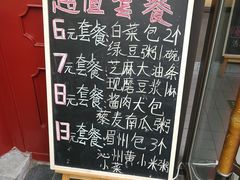 超值套餐
6元套餐:白菜包2个
绿豆粥1碗
7元套餐:芝麻大油条
现磨豆浆
8元套餐:酱肉大包
藜麦南瓜粥
13元套餐:眉州包3个
沁州黄小米粥
小菜